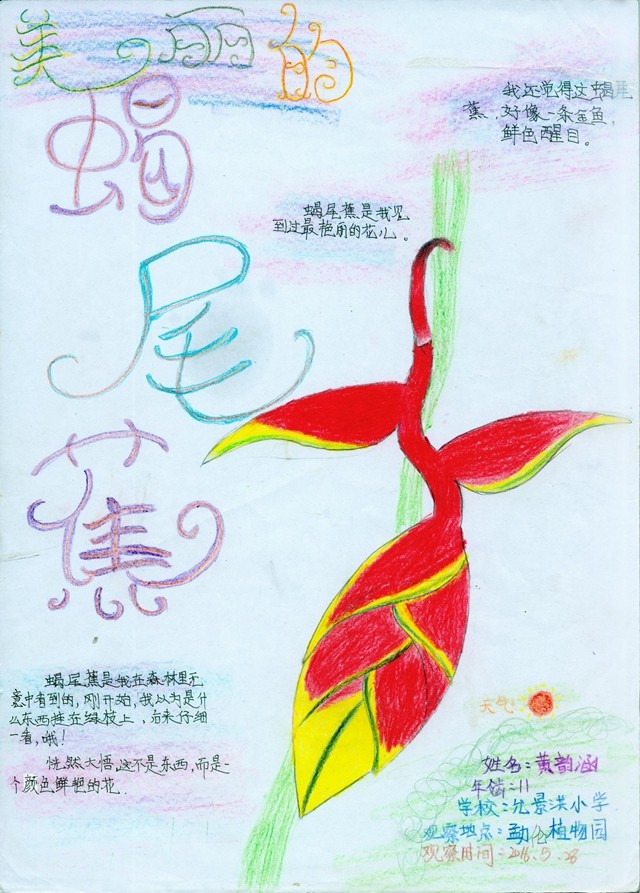 美丽的
蝎
尾
蕉
我还觉得这蝎尾
蕉,好像一条金鱼,
鲜色醒目。
蝎尾蕉是我见
到过最艳丽的花儿。
蝎尾蕉是我在森林里无
意中看到的,刚开始,我以为是什
么东西挂在绿枝上,后来仔细
一看,哦!
恍然大悟,这不是东西,而是一
个颜色鲜艳的花.
天气:
姓名:黄韵涵
年龄:11
学校:允景洪小学
观察地点:勐伦植物园
观察时间:2016.5.28